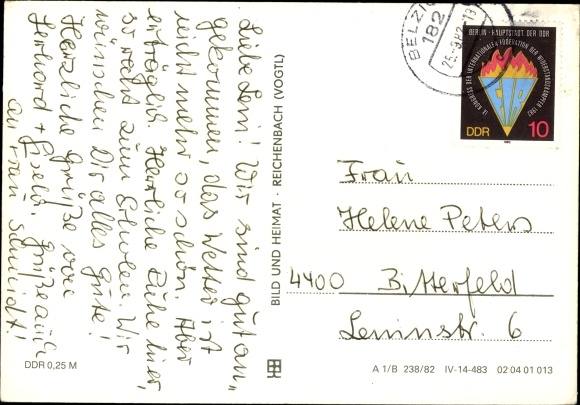 Liebe Leni! Wir sind gut an„
gekommen, das Wetter ist
nicht mehr so schön. Aber
erträglich. Herrliche Ruhe hier,
so recht zum Erholen. Wir
wünschen Dir alles Gute!
Herzliche Grüße von
Gerhard + Gisela. Grüße auch
an Frau Schmidt!
DDR 0,25 M
BILD UND HEIMAT · REICHENBACH (VOGTL)
BELZIG
182
BERLIN · HAUPTSTADT DER DDR
IX. KONGRESS DER INTERNATIONALEN FÖDERATION DER WIDERSTANDSKÄMPFER 1982
FIR
DDR 10
Frau
Helene Peters
4400 Bitterfeld
Leninstr. 6
A 1/B 238/82 IV-14-483 02 04 01 013